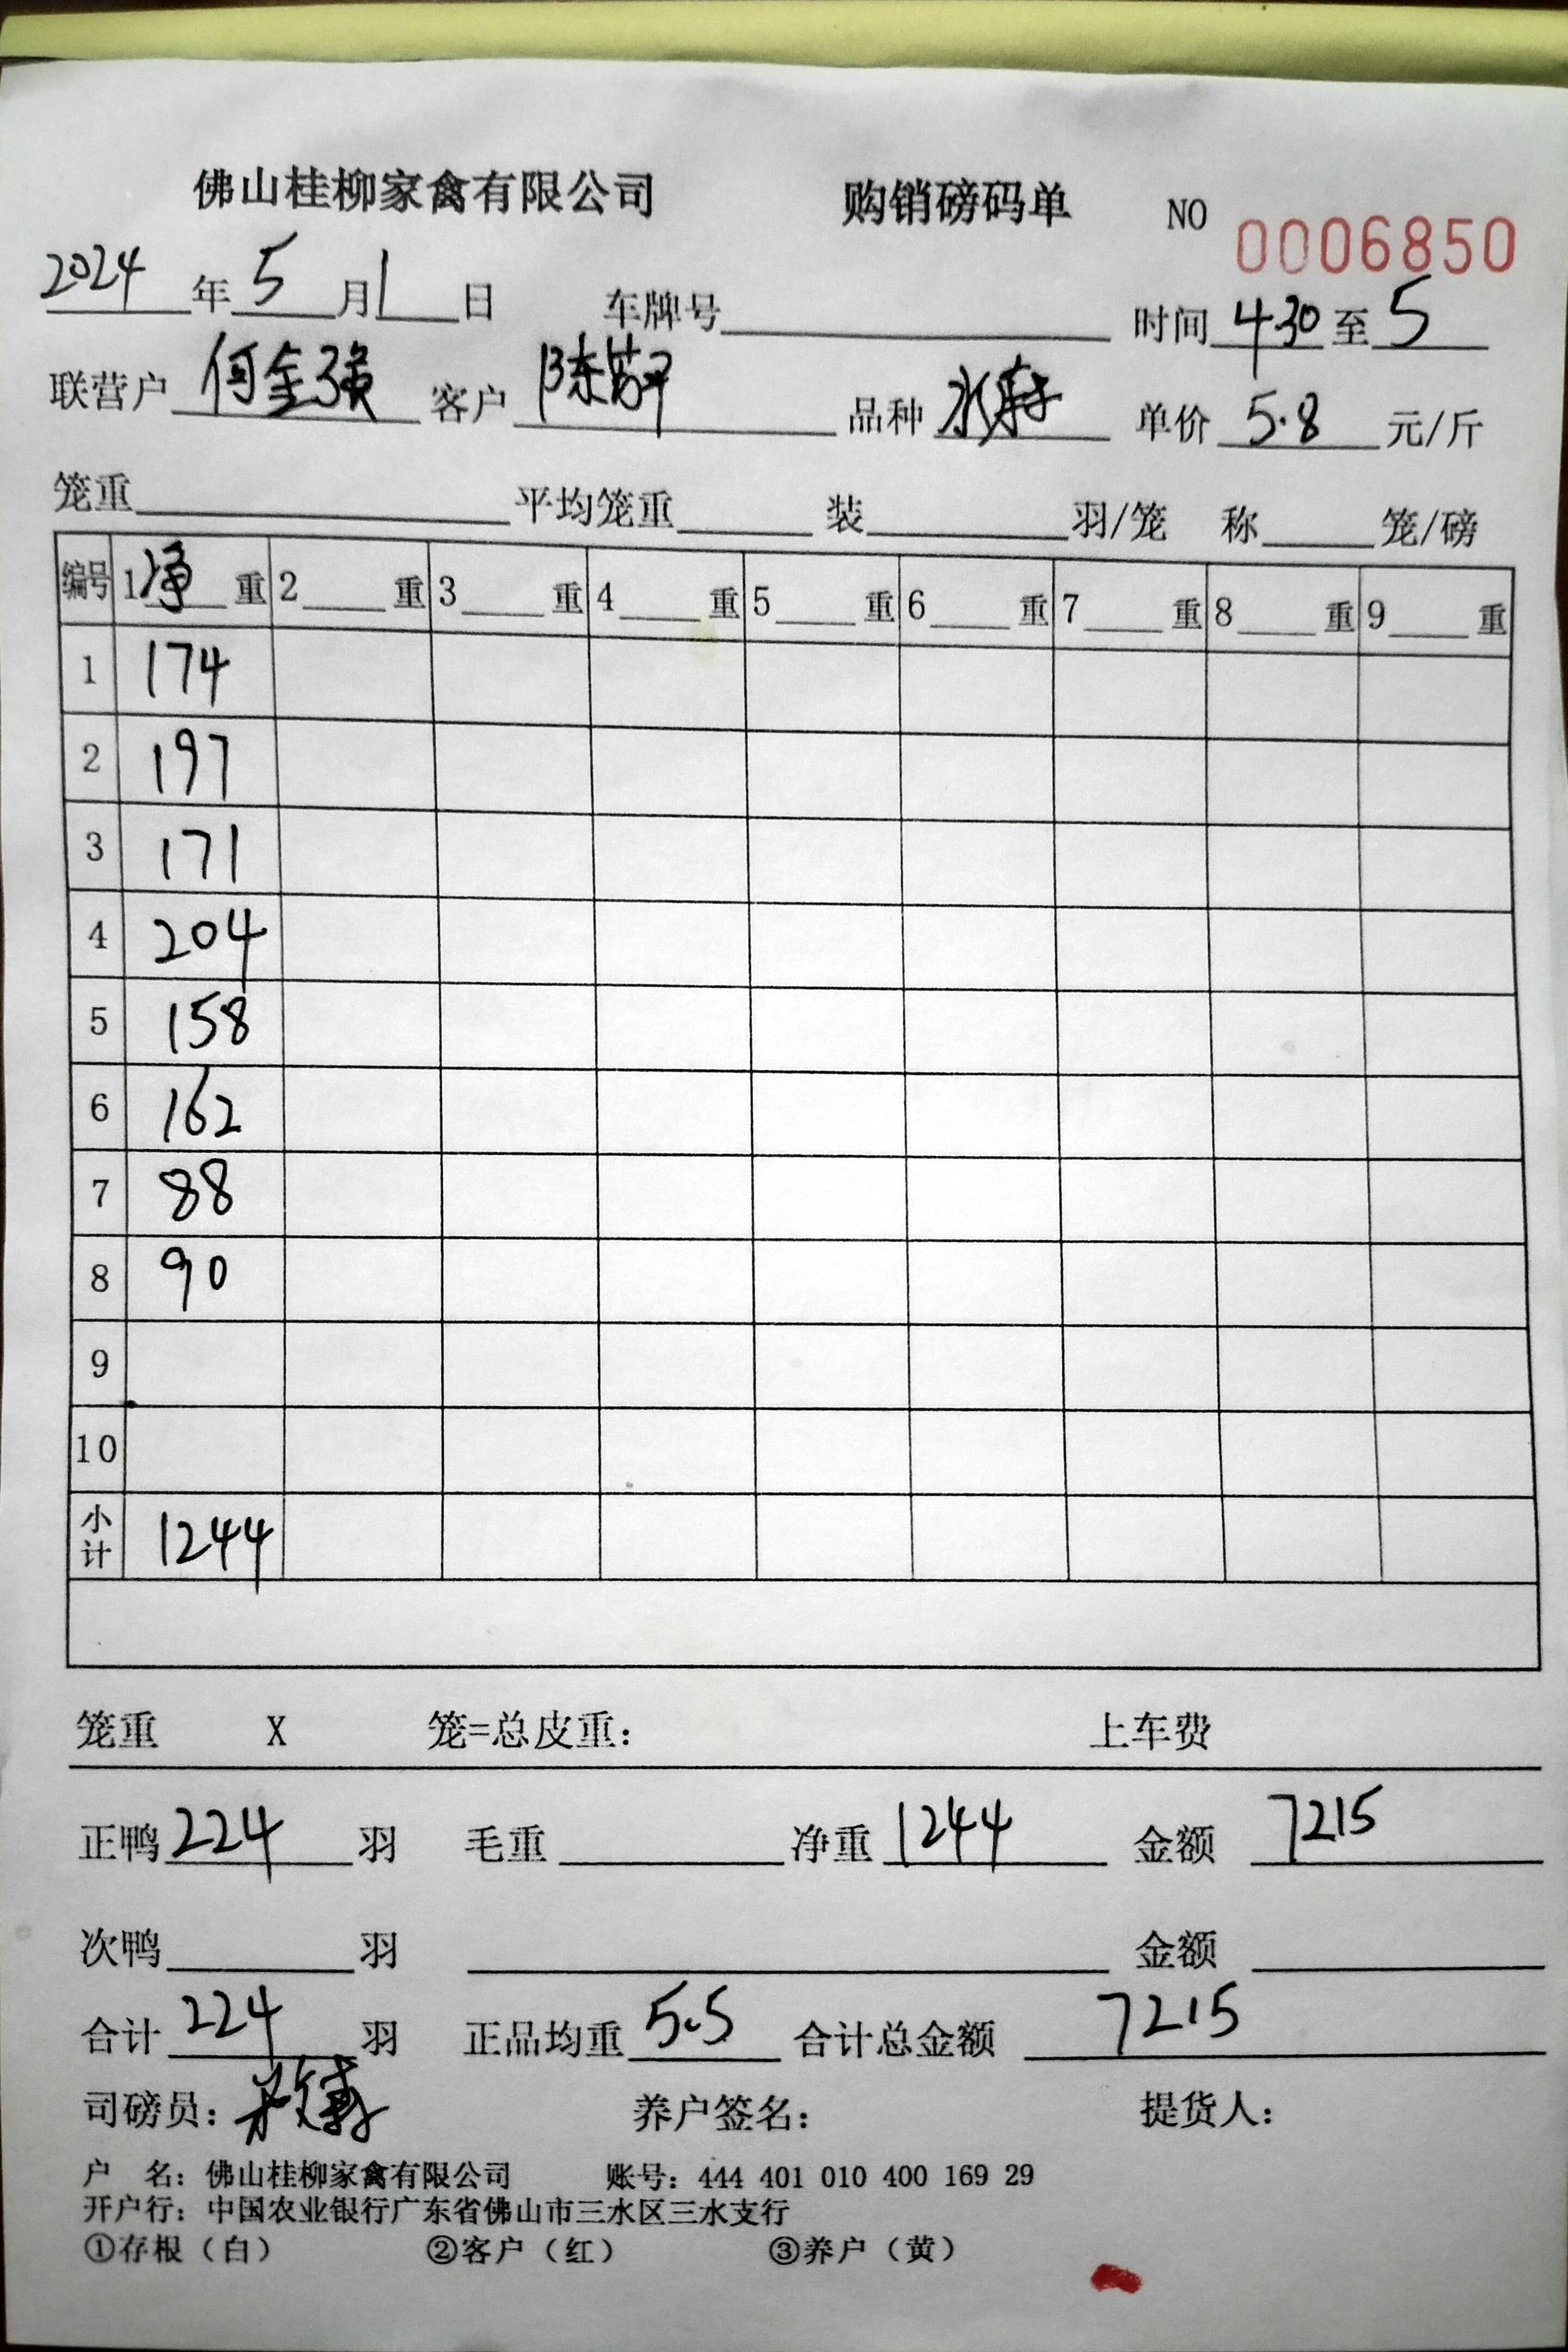 佛山桂柳家禽有限公司 购销磅码单 NO 0006850
2024年5月1日 车牌号 时间 430 至 5
联营户 何金强 客户 陈 品种 水 单价 5.8 元/斤
笼重 平均笼重 装 羽/笼 称 笼/磅
编号 1净重 2重 3重 4重 5重 6重 7重 8重 9重
1 174
2 197
3 171
4 204
5 158
6 162
7 88
8 90
9
10
小计 1244
笼重 X 笼=总皮重: 上车费
正鸭 224 羽 毛重 净重 1244 金额 7215
次鸭 羽 金额
合计 224 羽 正品均重 5.5 合计总金额 7215
司磅员: 养户签名: 提货人:
户 名: 佛山桂柳家禽有限公司 账号: 444 401 010 400 169 29
开户行: 中国农业银行广东省佛山市三水区三水支行
①存根（白） ②客户（红） ③养户（黄）